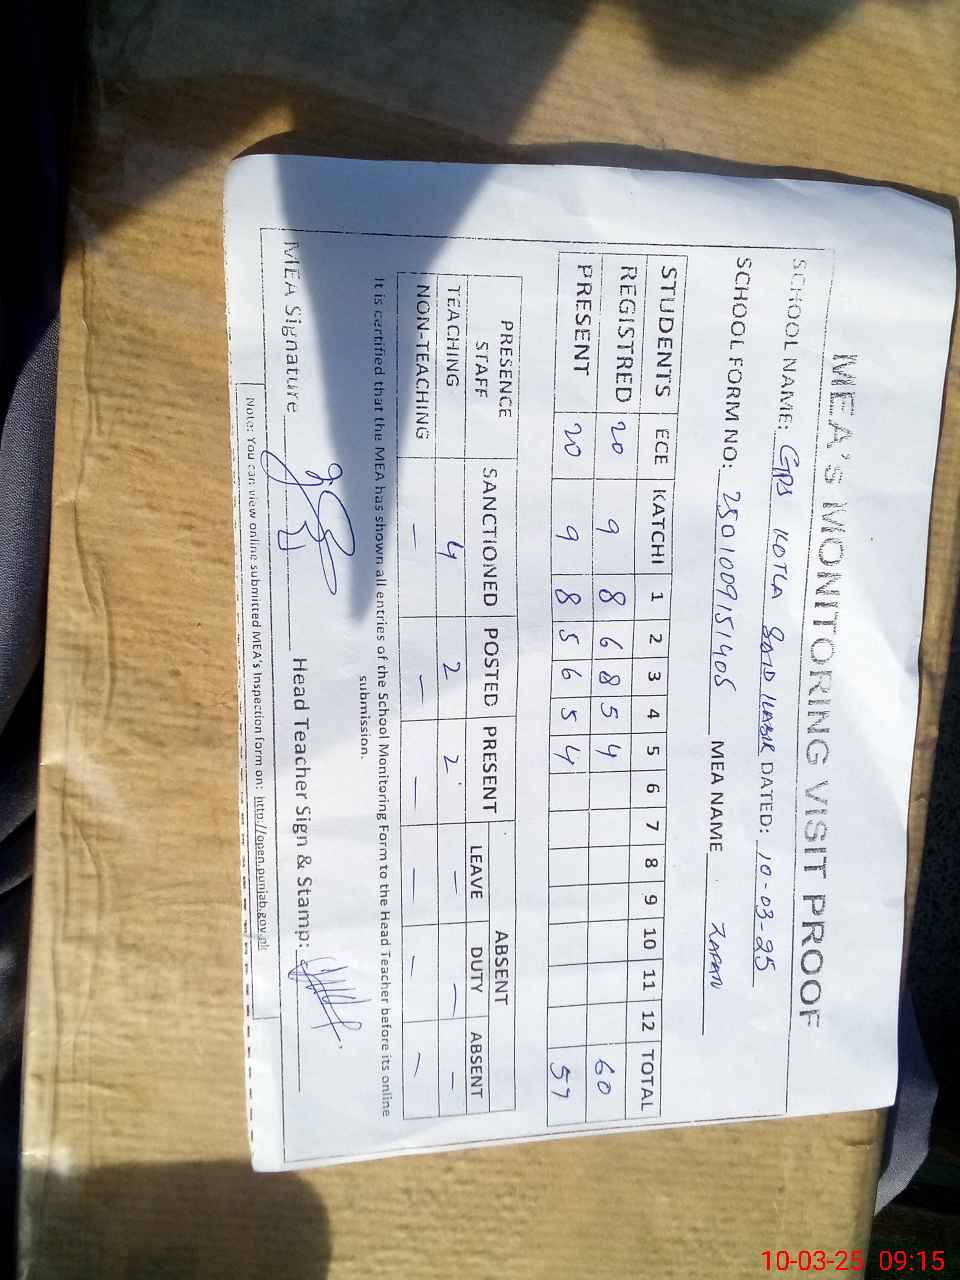 MEA's MONITORING VISIT PROOF
SCHOOL NAME: GPS KOTLA SAID KABIR DATED: 10-03-25
SCHOOL FORM NO: 2501009151405 MEA NAME
STUDENTS ECE KATCHI 1 2 3 4 5 6 7 8 9 10 11 12 TOTAL
REGISTRED 20 9 8 6 8 5 4 60
PRESENT 20 9 8 5 6 5 4 57
PRESENCE STAFF SANCTIONED POSTED PRESENT ABSENT
LEAVE DUTY ABSENT
TEACHING 4 2 2 – – –
NON-TEACHING – – – – – –
It is certified that the MEA has shown all entries of the School Monitoring Form to the Head Teacher before its online
submission.
MEA Signature Head Teacher Sign & Stamp:
Note: You can view online submitted MEA's Inspection form on: http://open.punjab.gov.pk
10-03-25 09:15